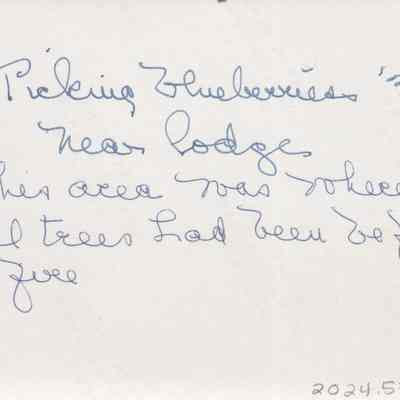 Picking blueberries "
Near lodges
his area was where
l trees had been be
fire
2024.5